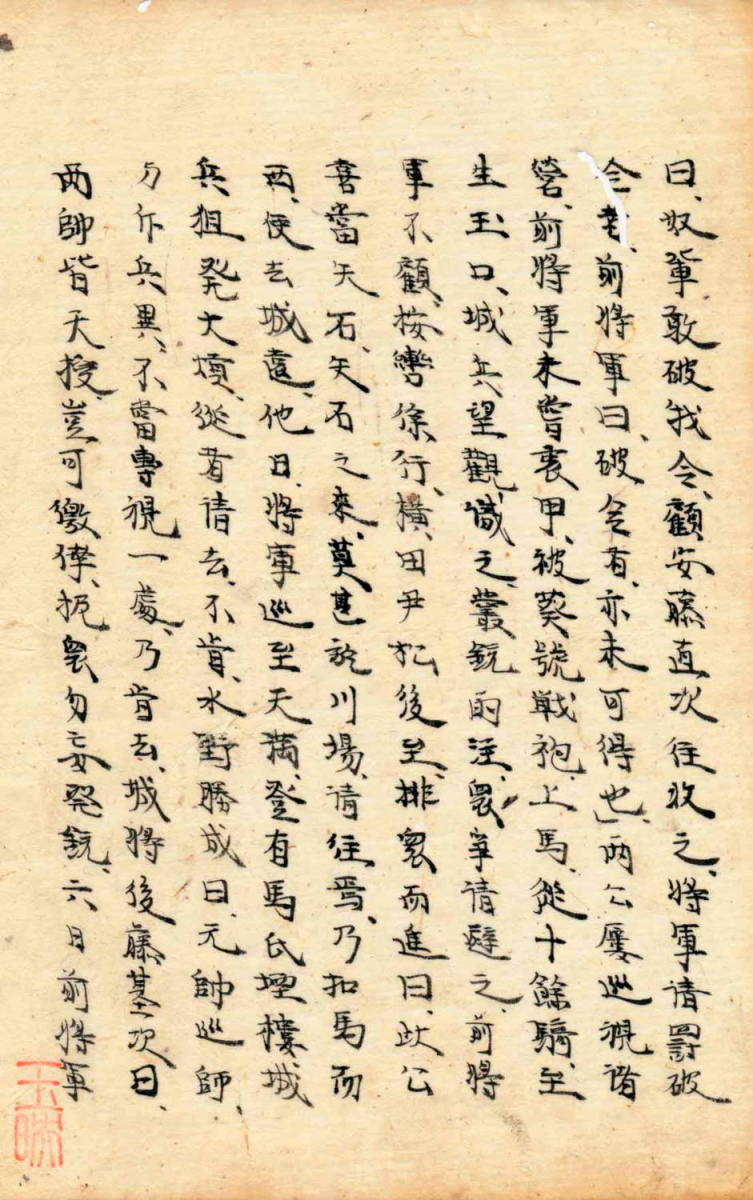 曰、奴輩敢破我令、顧安藤直次往收之、將軍請罰破
令者、前將軍曰、破令者、亦未可得也」兩公屢巡視諸
營、前將軍未嘗裹甲、被葵號戰袍、上馬、從十餘騎、至
生玉口、城兵望觀、識之、叢銃的注、衆爭請避之、前將
軍不顧、按轡徐行、橫田尹松後至、排衆而進曰、此公
喜當矢石、矢石之來、莫甚於川場、請往焉、乃扣馬而
西、便去城遠、他日、將軍巡至天滿、登有馬氏堙樓、城
兵狙発大熕、從者請去、不肯、水野勝成曰、元帥巡師、
乃斥兵異、不當專視一處、乃肯去、城將後藤基次曰、
兩帥皆天授、豈可儌倖、扼衆勿妄発銃、六日前將軍